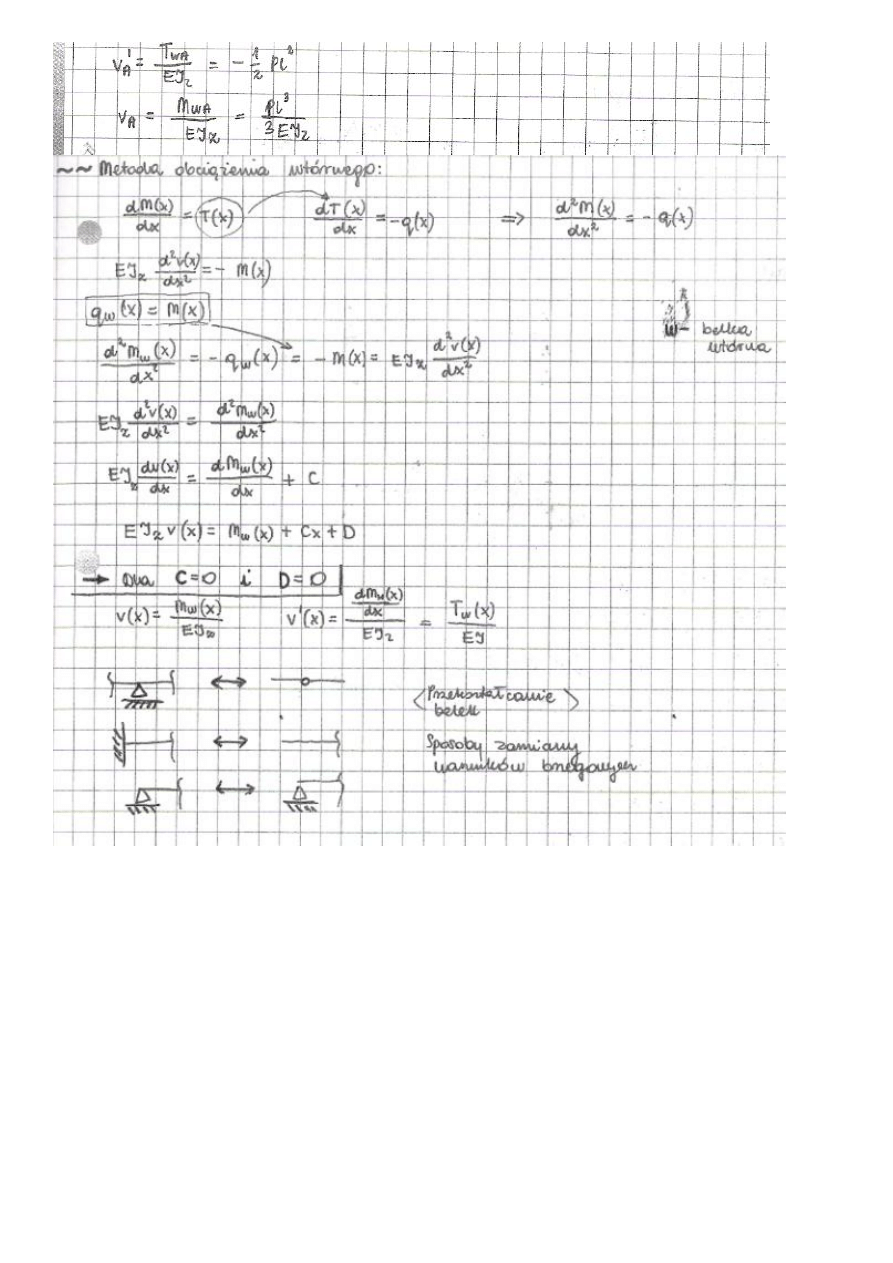 v_A' = T_WA / EJ_z = - 1/2 Pl²
v_A = M_WA / EJ_z = Pl³ / 3EJ_z
~~ Metoda obciążenia wtórnego:
dM(x)/dx = T(x) dT(x)/dx = -q(x) ⇒ d²M(x)/dx² = - q(x)
EJ_z d²v(x)/dx² = - M(x)
q_w(x) = M(x)
w - belka
wtórna
d²M_w(x)/dx² = - q_w(x) = - M(x) = EJ_z d²v(x)/dx²
EJ_z d²v(x)/dx² = d²M_w(x)/dx²
EJ_z dv(x)/dx = dM_w(x)/dx + C
EJ_z v(x) = M_w(x) + Cx + D
→ Dla C=0 i D=0
v(x) = M_w(x)/EJ_z v'(x) = (dM_w(x)/dx)/EJ_z = T_w(x)/EJ
⟨Przekształcanie
belek⟩
Sposoby zamiany
warunków brzegowych